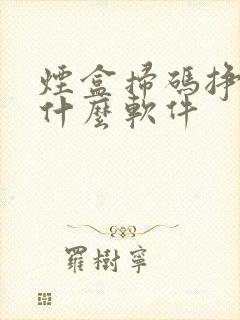 煙盒掃碼掙
什麼軟件
羅樹寧